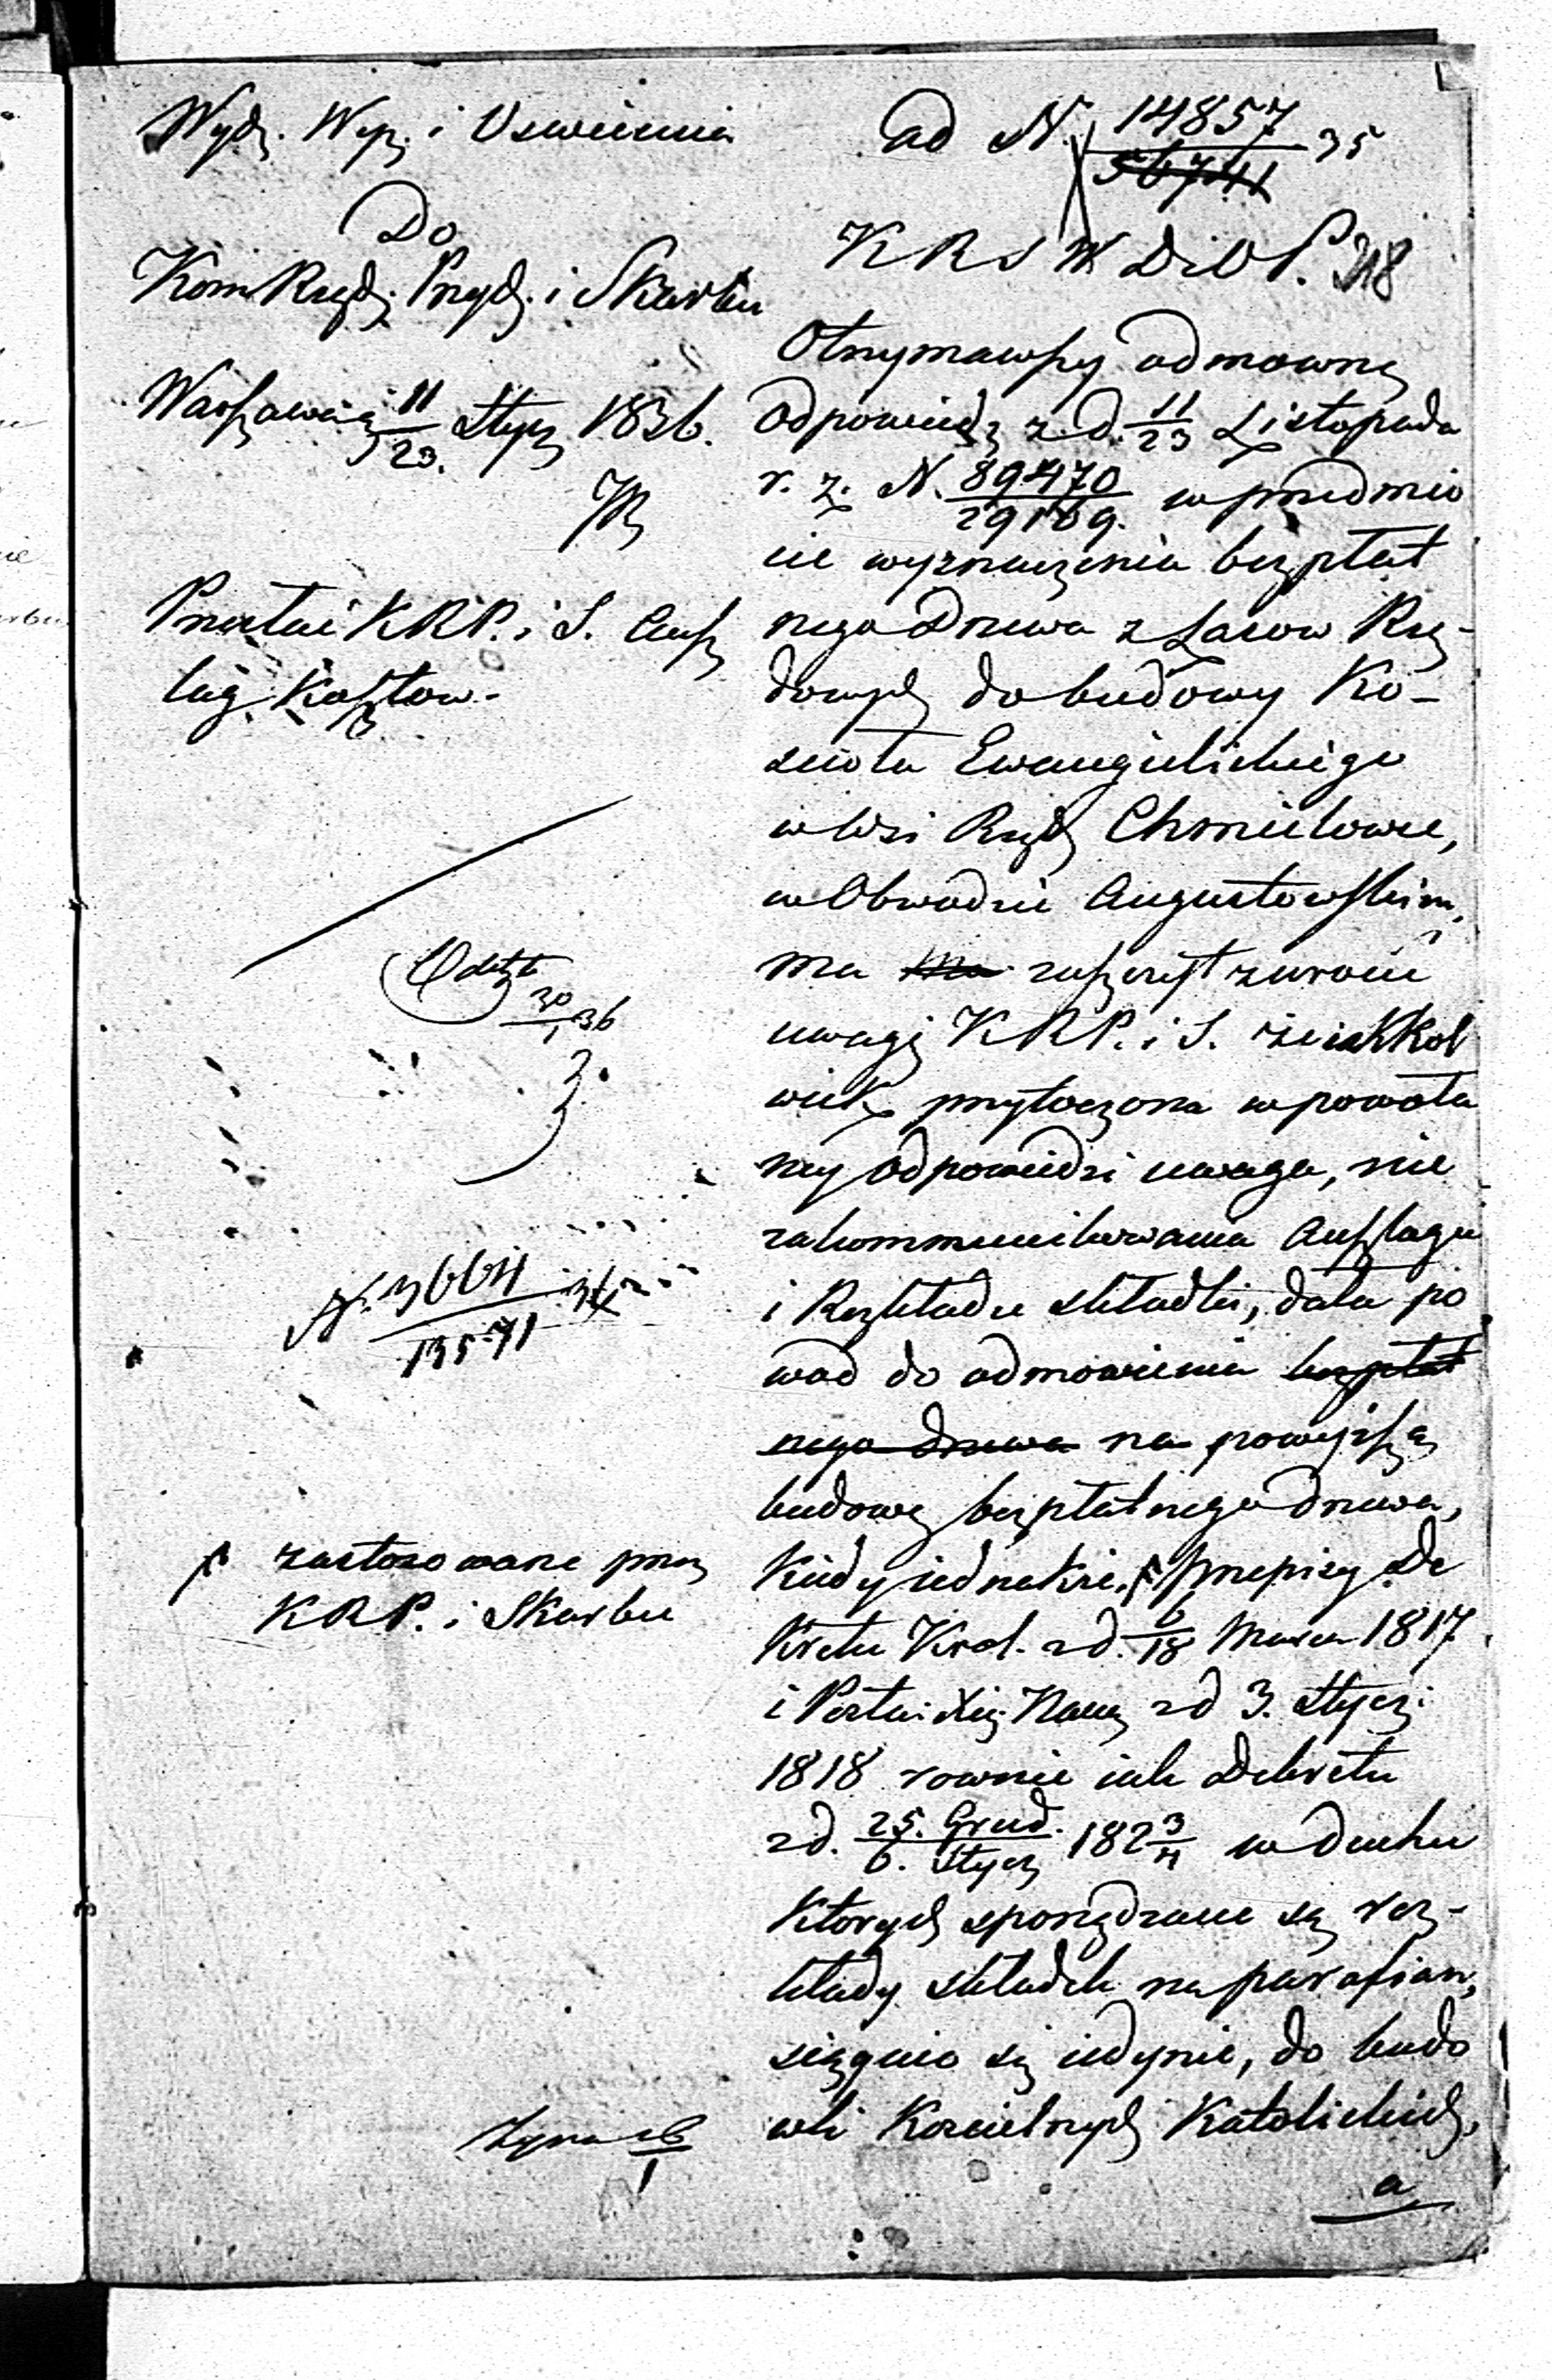 Wydz. Wyz. i Oswiecenia
ad N. 14857/56741 35
Do
Kom Rządz. Przych. i Skarbu
K R S W D i O P. 318
Warszawa d 11/23. Stycz 1836.
Przesłać KRP. i S. Ansz
lag Kosztow.
Otrzymawszy odmowną
odpowiedz z d. 11/23 Listopada
r. z. N. 89470/29169. w przedmio
cie wyznaczenia bezpłat
nego Drzewa z Lasow Rzą-
dowych do budowy Ko-
scioła Ewangielickiego
w Wsi Rządz Chmielowce,
w Obwodzie Augustowskim,
ma ma zaszczyt zwrocić
uwagę KRP. i S. że iakkol
wiek przytoczona w powoła
ney odpowiedzi uwaga, nie
zakommunikowania Anszlagu
i Rozkładu składki, dała po
wod do odmowienia bezpłat
nego drzewa na powyższą
budowę bezpłatnego drzewa,
kiedy iednakże, przepisy De
kretu Krol. z d. 6/18 Marca 1817
i Posta: Xcia Nam z d 3. Stycz:
1818 rownie iak Dekretu
z d. 25. Grud./6. Stycz 182 3/4 w duchu
ktorych sporządzane są roz-
kłady składek na parafian,
sciągaią się iedynie, do budo
wli Koscielnych Katolickich,
a
30/1 36
N. 3664/13571 36
zastosowane przez
KRP. i Skarbu